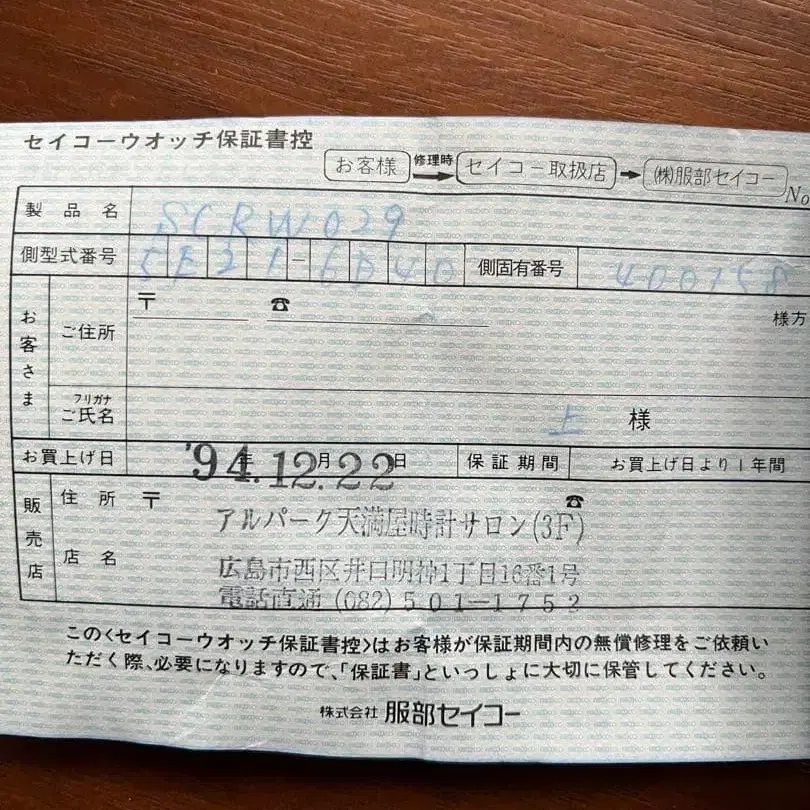 セイコーウオッチ保証書控
お客様 修理時 セイコー取扱店 ㈱服部セイコー
No
製品名 SCRW029
側型式番号 5E21-6D40 側固有番号 400158
お客さま
ご住所 〒 ☎ 様方
フリガナ
ご氏名 上 様
お買上げ日 '94年12月22日 保証期間 お買上げ日より1年間
販売店
住所 〒 ☎
アルパーク天満屋時計サロン(3F)
店名
広島市西区井口明神1丁目16番1号
電話直通 (082) 501-1752
この〈セイコーウオッチ保証書控〉はお客様が保証期間内の無償修理をご依頼い
ただく際、必要になりますので、「保証書」といっしょに大切に保管してください。
株式会社 服部セイコー